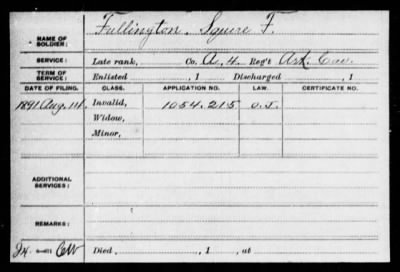 NAME OF SOLDIER: Fullington, Squire F.
SERVICE: Late rank, Co. A, 4 Reg't Ark. Cav.
TERM OF SERVICE: Enlisted , 1 Discharged , 1
DATE OF FILING. CLASS. APPLICATION NO. LAW. CERTIFICATE NO.
1891 Aug. 14. Invalid, 1054.215
Widow,
Minor,
ADDITIONAL SERVICES:
REMARKS:
Died , 1 , at